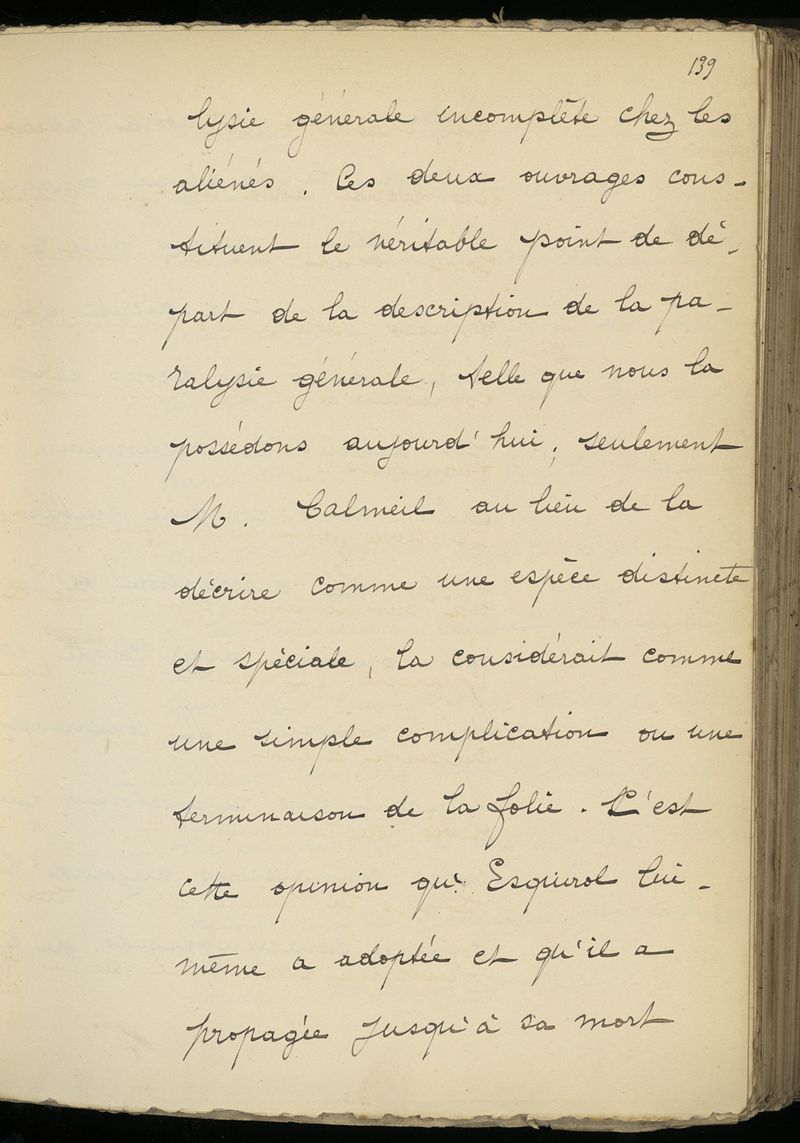 139
lysie générale incomplète chez les
aliénés. Ces deux ouvrages cons-
tituent le véritable point de dé-
part de la description de la pa-
ralysie générale, telle que nous la
possédons aujourd'hui; seulement
M. Calmeil au lieu de la
décrire comme une espèce distincte
et spéciale, la considérait comme
une simple complication ou une
terminaison de la folie. C'est
cette opinion qu'Esquirol lui-
même a adoptée et qu'il a
propagée jusqu'à sa mort